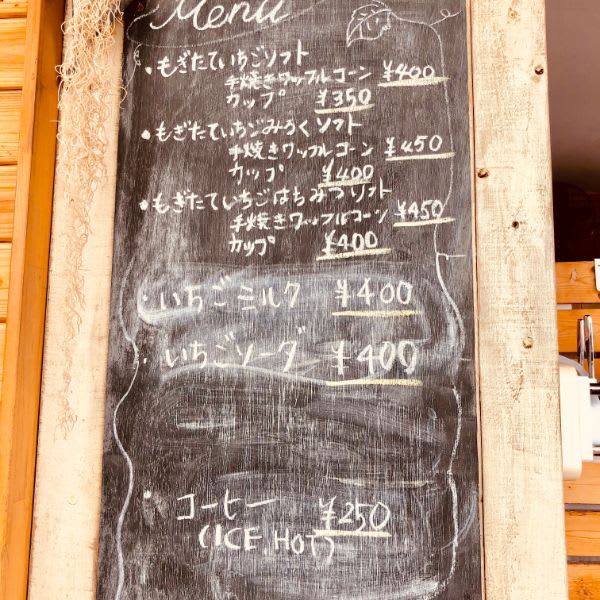 Menu
・もぎたていちごソフト
手焼きワッフルコーン ¥400
カップ ¥350
・もぎたていちごみるくソフト
手焼きワッフルコーン ¥450
カップ ¥400
・もぎたていちごはちみつソフト
手焼きワッフルコーン ¥450
カップ ¥400
・いちごミルク ¥400
・いちごソーダ ¥400
・コーヒー ¥250
(ICE, HOT)